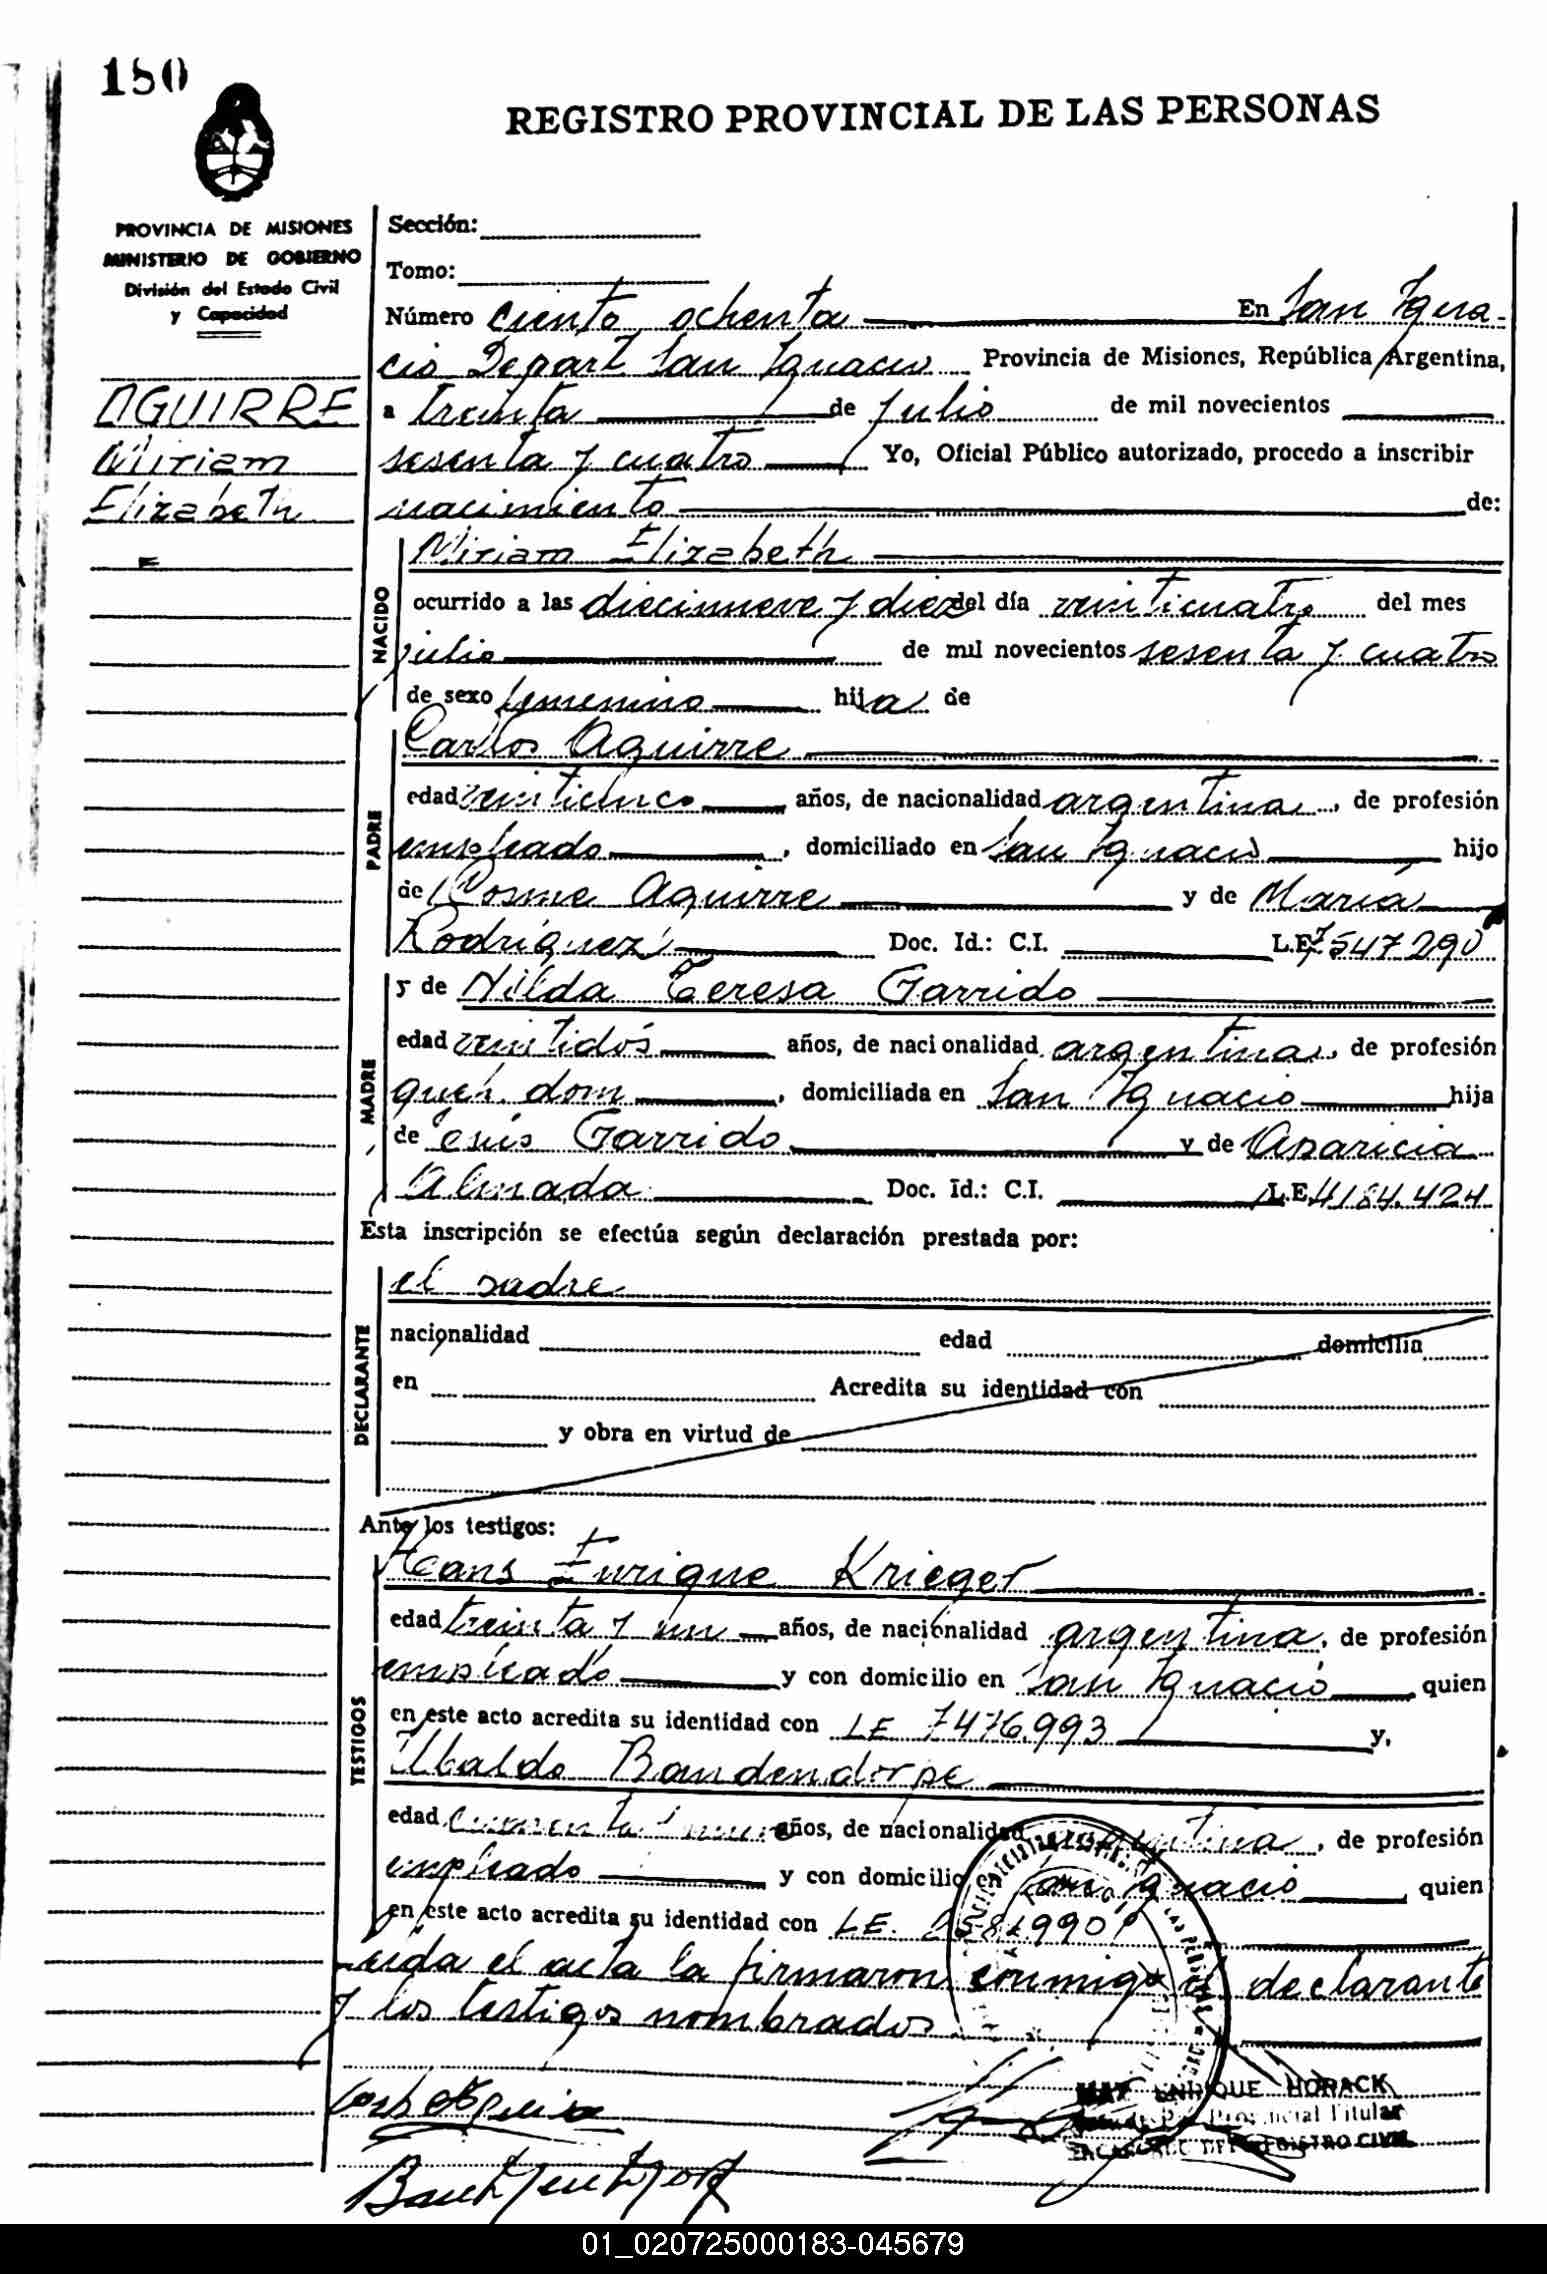 180
REGISTRO PROVINCIAL DE LAS PERSONAS
PROVINCIA DE MISIONES
MINISTERIO DE GOBIERNO
División del Estado Civil
y Capacidad
AGUIRRE
Miriam
Elizabeth
Sección:
Tomo:
Número ciento ochenta En San Igna-
cio Depart San Ignacio Provincia de Misiones, República Argentina,
a treinta de julio de mil novecientos
sesenta y cuatro Yo, Oficial Público autorizado, procedo a inscribir
nacimiento de:
NACIDO
Miriam Elizabeth
ocurrido a las diecinueve y diez del día veinticuatro del mes
julio de mil novecientos sesenta y cuatro
de sexo femenino hija de
PADRE
Carlos Aguirre
edad veinticinco años, de nacionalidad argentina, de profesión
empleado, domiciliado en San Ignacio hijo
de Cosme Aguirre y de María
Rodríguez Doc. Id.: C.I. L.E. 7547290
MADRE
y de Nilda Teresa Garrido
edad veintidós años, de nacionalidad argentina, de profesión
queh. dom, domiciliada en San Ignacio hija
de Garrido y de Aparicia
Almada Doc. Id.: C.I. L.E. 4184.424
Esta inscripción se efectúa según declaración prestada por:
DECLARANTE
el padre
nacionalidad edad domicilia
en Acredita su identidad con
y obra en virtud de
Ante los testigos:
TESTIGOS
Hans Enrique Krieger
edad treinta y un años, de nacionalidad argentina, de profesión
empleado y con domicilio en San Ignacio quien
en este acto acredita su identidad con LE 7476.993 y,
Ubaldo Bandendorpe
edad años, de nacionalidad argentina, de profesión
empleado y con domicilio en San Ignacio quien
en este acto acredita su identidad con LE.
Leída el acta la firmaron conmigo el declarante
y los testigos nombrados.
ENRIQUE HORACK
Provincial Titular
ENCARGADO DEL REGISTRO CIVIL
01_020725000183-045679